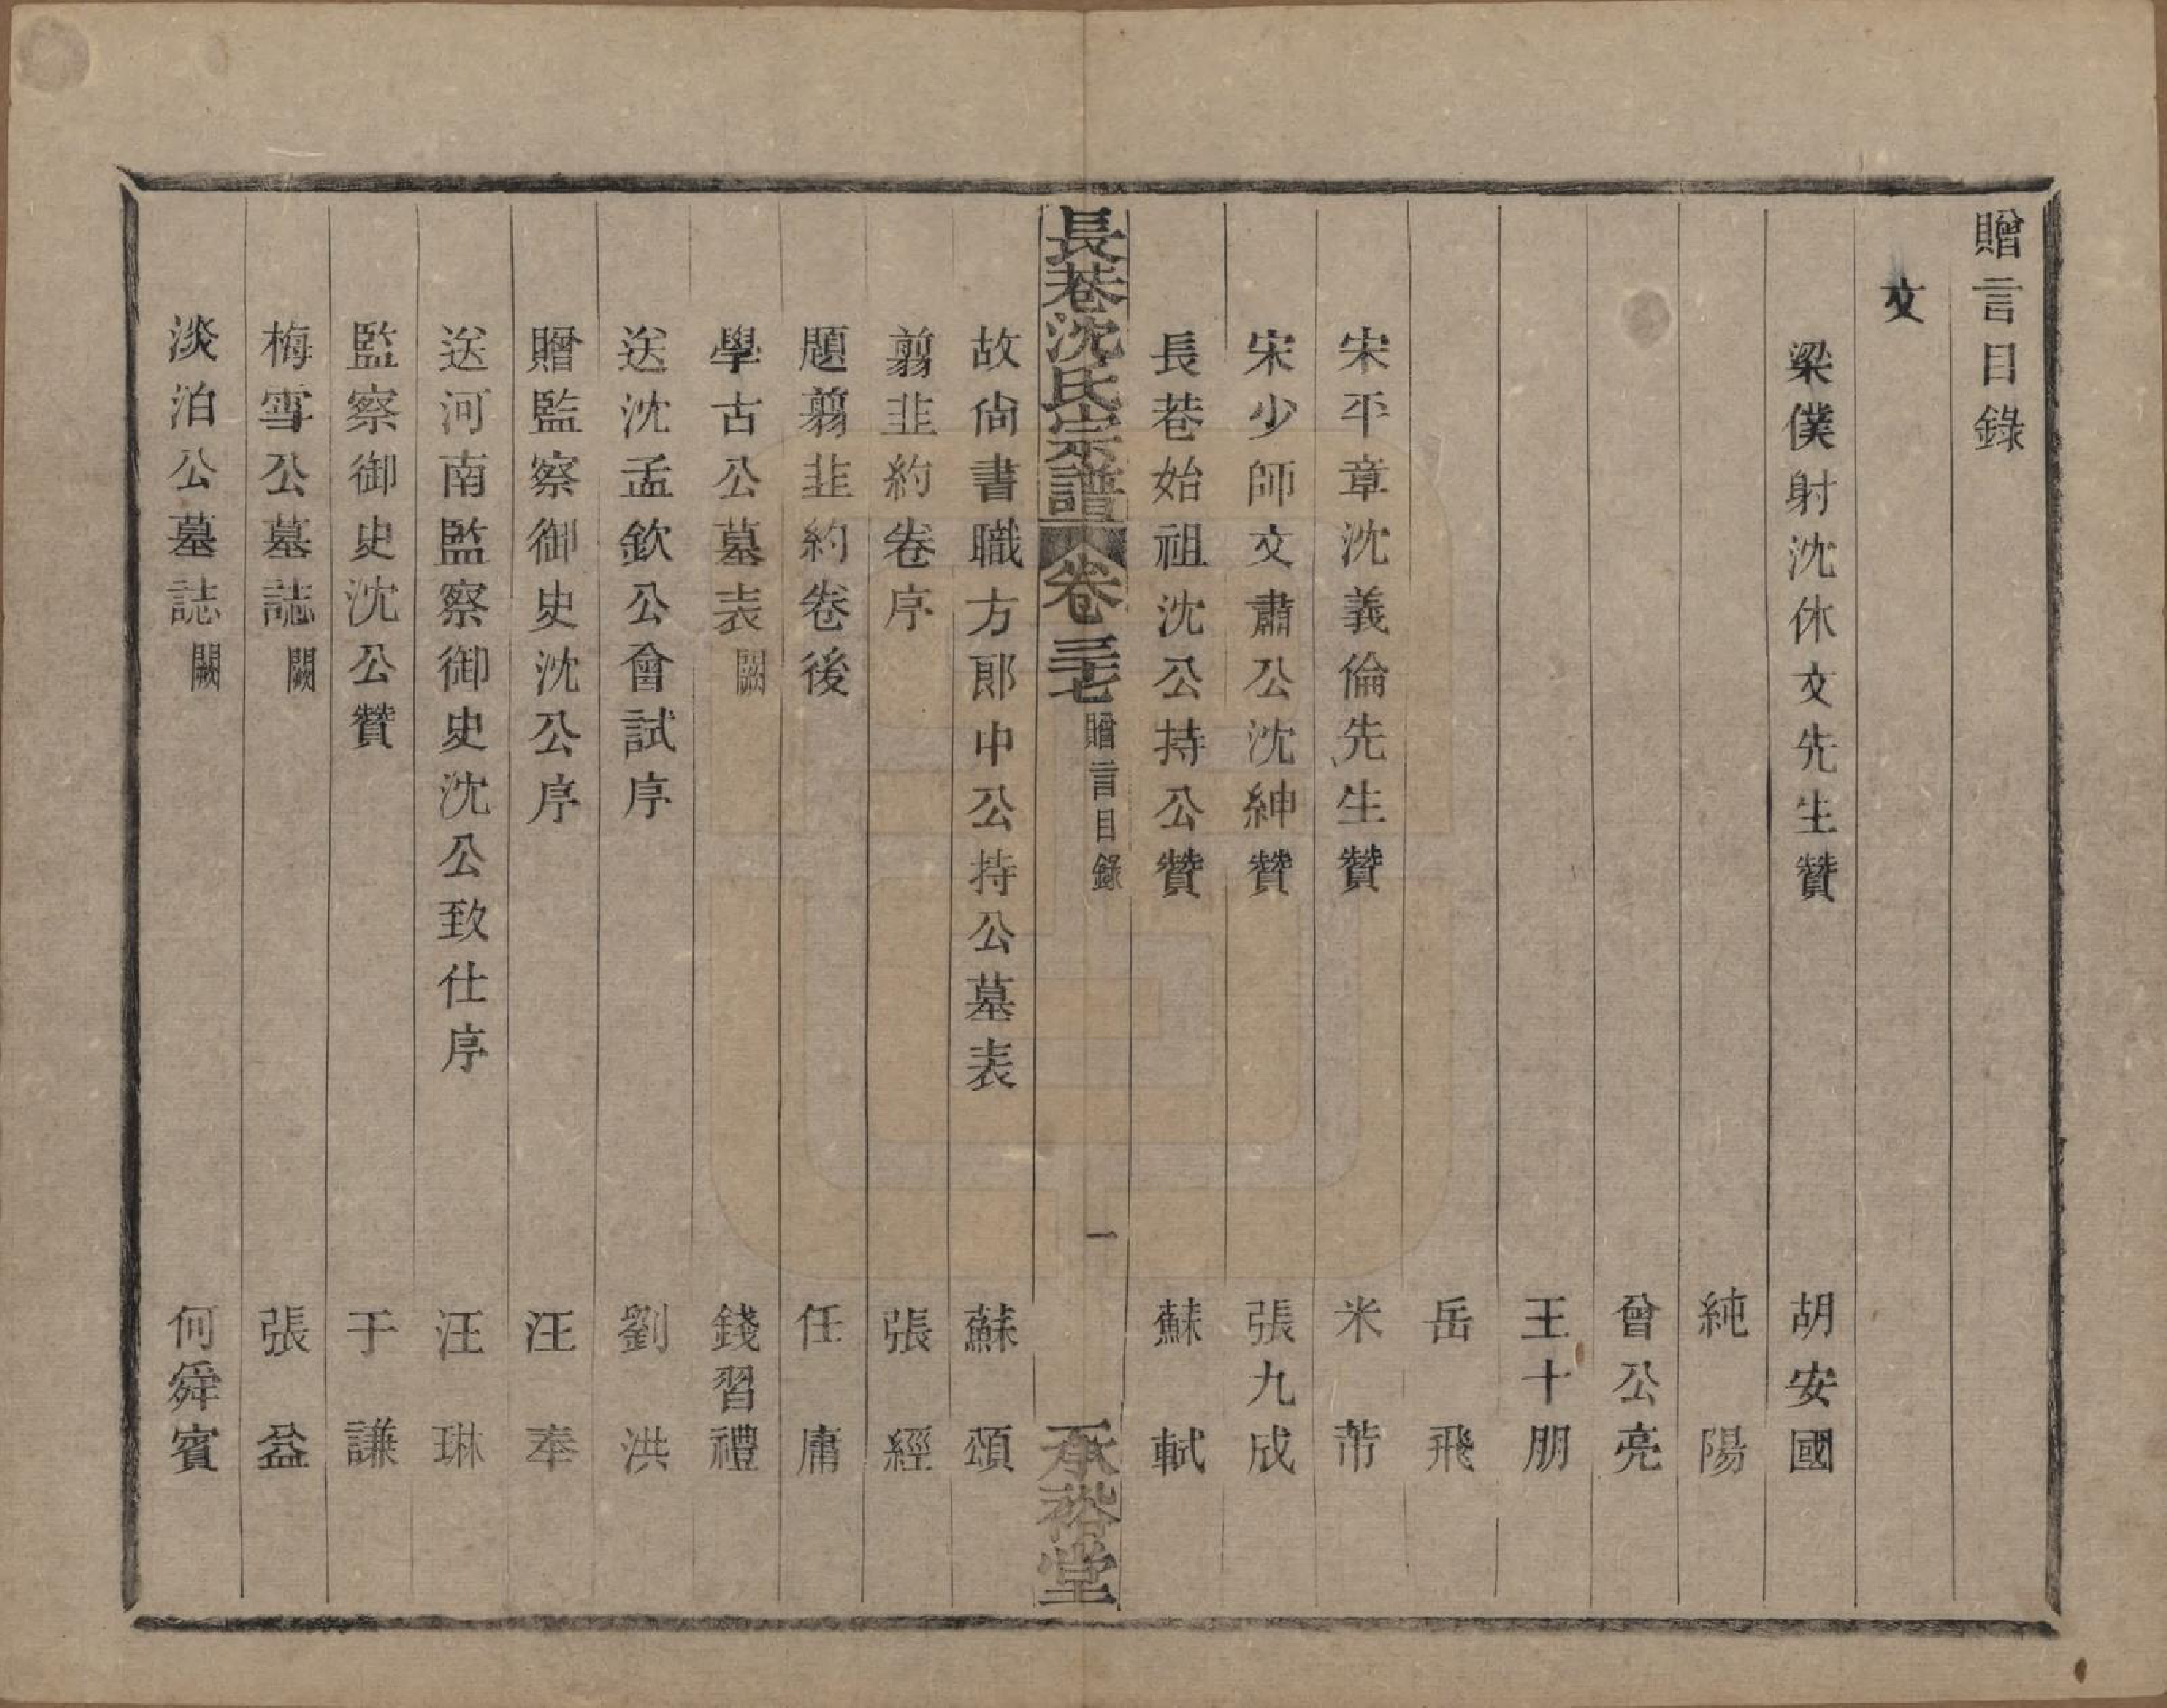 贈言目錄
文
梁僕射沈休文先生贊 胡安國
純陽
曾公亮
王十朋
岳飛
宋平章沈義倫先生贊 米芾
宋少師文肅公沈紳贊 張九成
長巷始祖沈公持公贊 蘇軾
長巷沈氏宗譜 卷三七 贈言目錄 一 承裕堂
故尙書職方郎中公持公墓表 蘇頌
翦韭約卷序 張經
題翦韭約卷後 任庸
學古公墓表闕 錢習禮
送沈孟欽公會試序 劉洪
贈監察御史沈公序 汪奉
送河南監察御史沈公致仕序 汪琳
監察御史沈公贊 于謙
梅雪公墓誌闕 張益
淡泊公墓誌闕 何舜賓